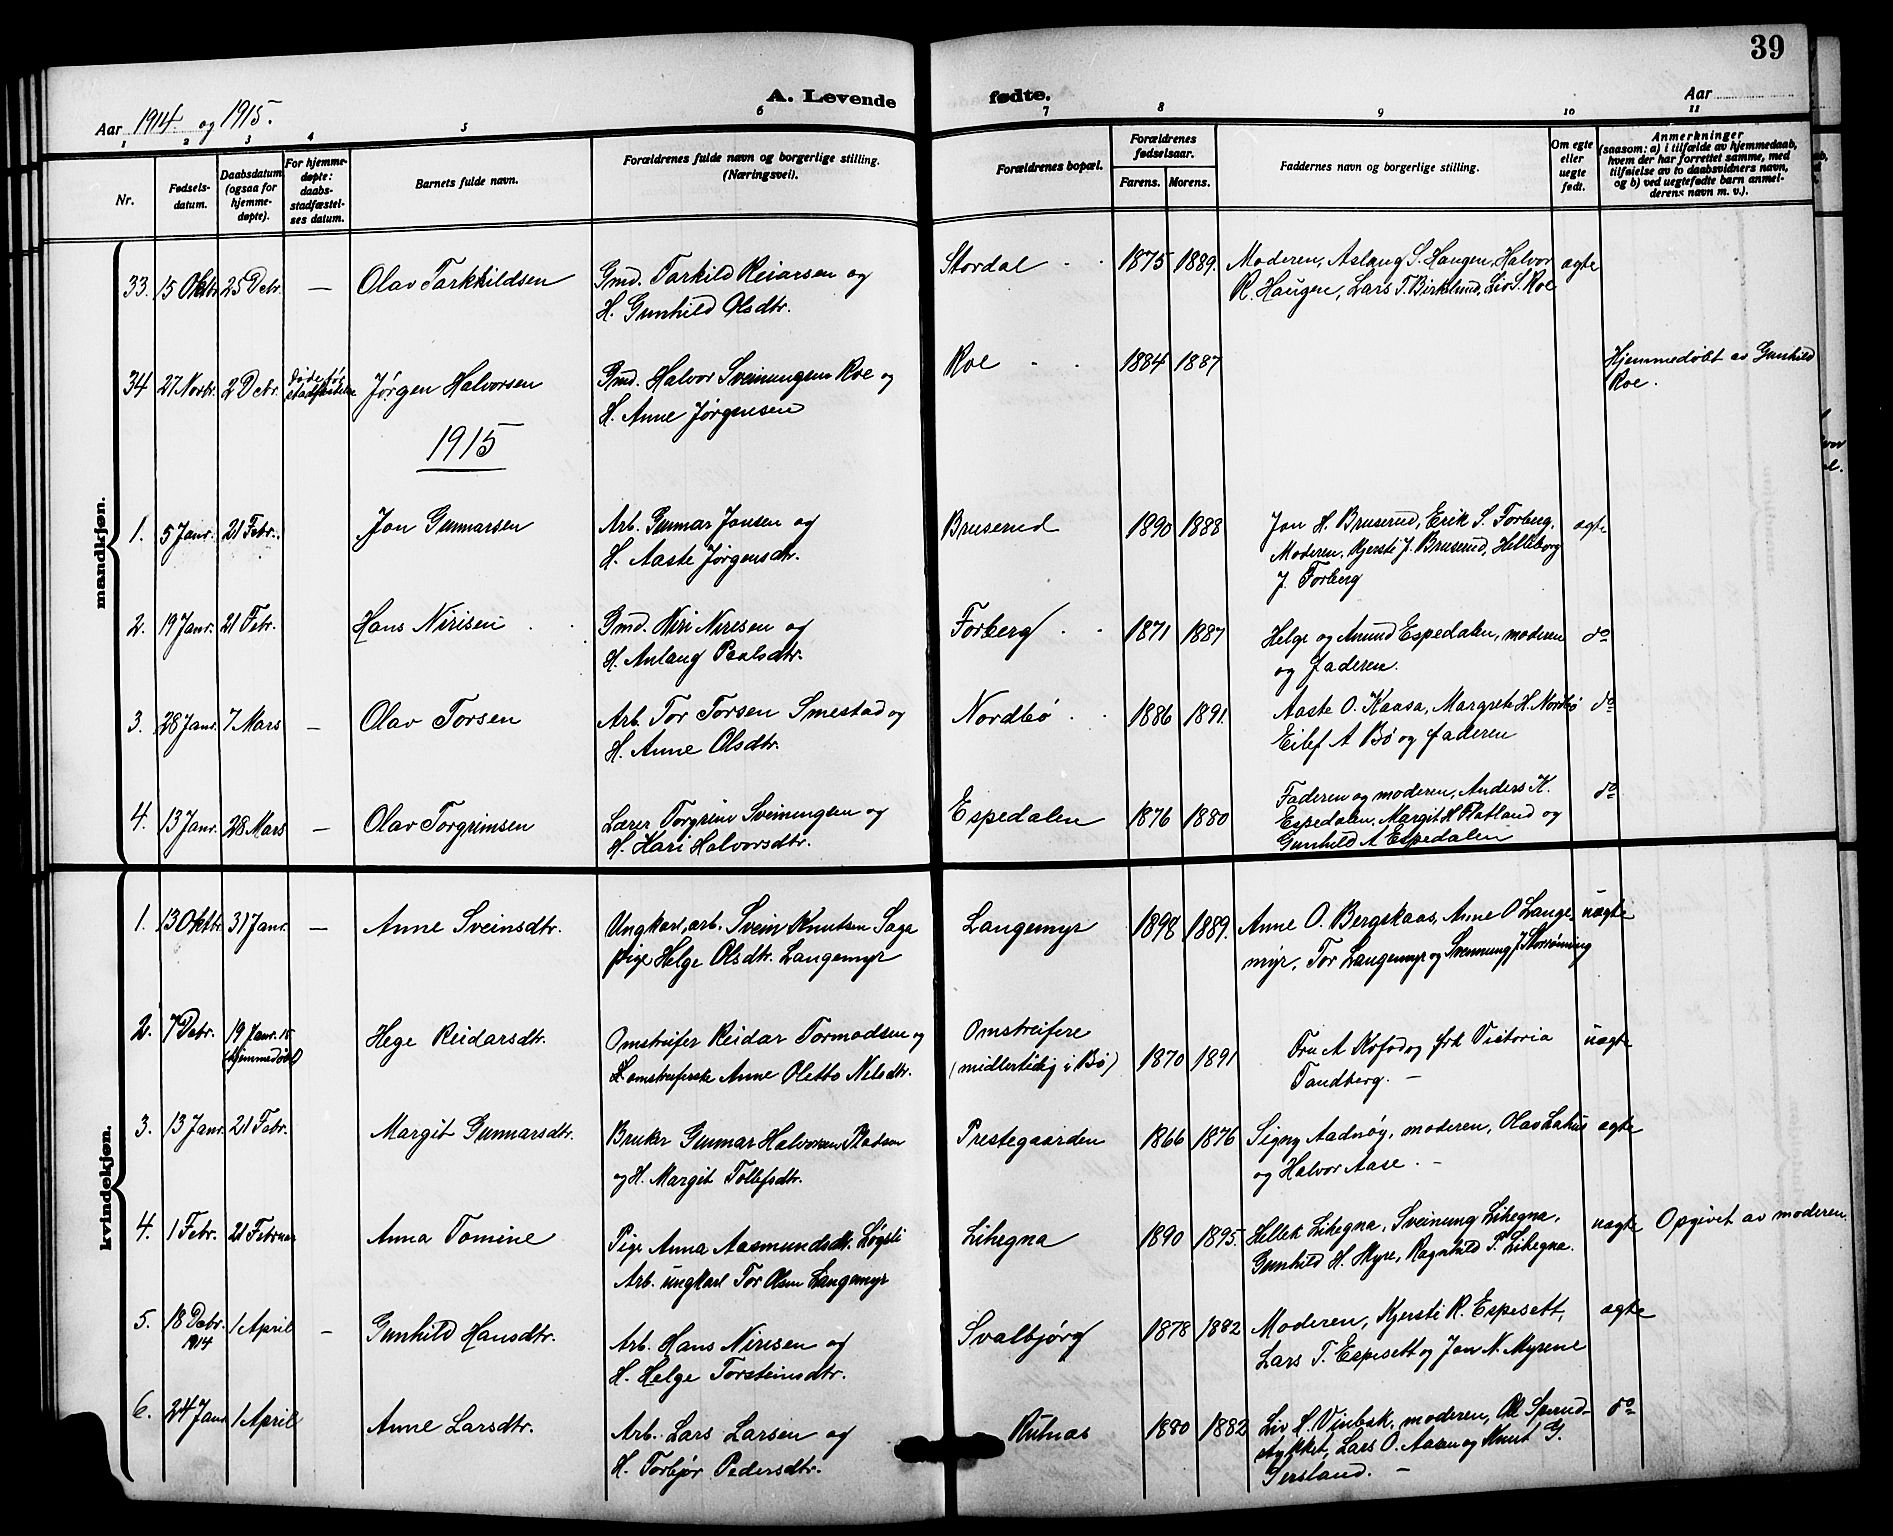 39
A. Levende fødte.
Aar 1914 og 1915.
Aar
1 2 3 4 5 6 7 8 9 10 11
Nr.
Fødsels-
datum.
Daabsdatum
(ogsaa for
hjemme-
døpte).
For hjemme-
døpte:
daabs-
stadfæstel-
ses datum.
Barnets fulde navn.
Forældrenes fulde navn og borgerlige stilling.
(Næringsvei).
Forældrenes bopæl.
Forældrenes
fødselsaar.
Farens. Morens.
Faddernes navn og borgerlige stilling.
Om egte
eller
uegte
født.
Anmerkninger
(saasom: a) i tilfælde av hjemmedaab,
hvem der har forrettet samme, med
tilføielse av to daabsvidners navn,
og b) ved uegtefødte barn anmel-
derens navn m. v.).
mandkjøn.
33. 15 Oktbr. 25 Debr. — Olav Tarkkildsen Gmd. Tarkild Reiarsen og Stordal 1875 1889. Moderen, Aslaug S. Haugen, Halvor ægte
H. Gunhild Olsdtr. R. Haugen, Lars T. Birkelund, Liv S. Roe
34 27 Novbr. 2 Debr. Døde før stadfæstelse Jørgen Halvorsen Gmd. Halvor Sveinungsen Roe og Roe 1884 1887 Hjemmedøbt av Gunhild
H. Anne Jørgensen Roe.
1915
1. 5 Janr. 21 Febr. Jon Gunnarsen Arb. Gunnar Jonsen og Bruserud 1890 1888 Jon H. Bruserud, Erik S. Forberg, ægte
H. Aaste Jørgensdtr. Moderen, Kjersti J. Bruserud, Helleborg
J. Forberg
2. 19 Janr. 21 Febr. Hans Nirisen Gmd. Niri Niresen og Forberg 1871 1887 Helge og Anund Espedalen, moderen do
H. Anlaug Paalsdtr. og faderen.
3. 28 Janr. 7 Mars — Olav Torsen Arb. Tor Torsen Smestad og Nordbø 1886 1891. Aaste O. Kaasa, Margrete H. Nordbø do
H. Anne Olsdtr. Eilef A Bø og faderen
4. 13 Janr. 28 Mars — Olav Torgrimsen Lærer Torgrim Sveinungsen og Espedalen 1876 1880 Faderen og moderen, Anders K. do
H. Kari Halvorsdtr. Espedalen, Margit H. Flatland og
Gunhild A Espedalen
kvindekjøn.
1. 13 Oktbr. 31 Janr. — Anne Sveinsdtr. Ungkarl, arb. Svein Knutsen Sage Langemyr 1898 1889. Anne O. Bergskaas, Anne O Lange- uægte
Pige Helge Olsdtr. Langemyr myr, Tor Langemyr og Sveinung J Storrønning
2. 7 Debr. 19 Janr. 15 (hjemmedøbt) Hege Reidarsdtr. Omstreifer Reidar Tormodsen og Omstreifere 1870 1891 Fru A Kofod og frk Victoria uægte
omstreiferske Anne Oletto Nelsdtr. (midlertidig i Bø) Tandberg. —
3. 13 Janr. 21 Febr. Margit Gunnarsdtr. Bruker Gunnar Halvorsen Prestegaarden 1866 1876 Signy Aadnøy, moderen, Olav Lahus ægte
og H. Margit Tollefsdtr. og Halvor Aase. —
4. 1 Febr. 21 Februar Anna Tomine Pige Anna Aasmundsdtr. Løgsli Lihegna 1890 1895. Hellek Lihegna, Sveinung Lihegna, uægte Opgivet av moderen.
Arb. ungkarl Tor Olsen Langemyr Gunhild H. Myre, Ragnhild P. Lihegna.
5. 18 Debr. 1914 1 April — Gunhild Hansdtr. Arb. Hans Nirisen og Svalbjørg 1878 1882 Moderen, Kjersti R. Espesett, ægte
H. Helge Torsteinsdtr. Lars T. Espesett og Jon N. Myrene
6. 24 Janr. 1 April Anne Larsdtr. Arb. Lars Larsen og Rutnas 1880 1882 Liv H. Vinbek, moderen, Ole Sperud- do
H. Torbjør Pedersdtr. stykket, Lars O. Aasen og Knut G.
Gersland. —